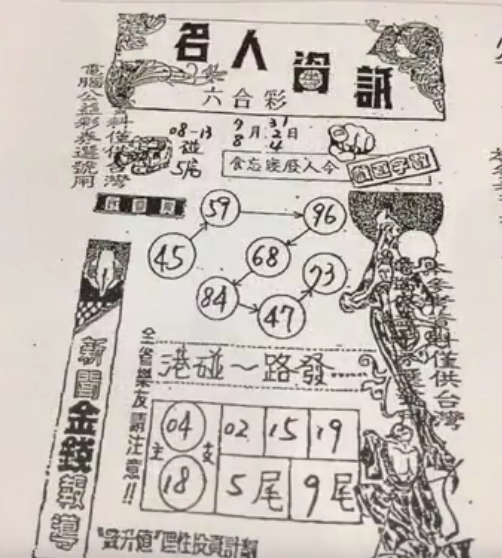 名人資訊
六合彩
資料僅供台灣
電腦公益彩券選號用
08-13
7月31日
8 2 4
5尾
令人廢寢忘食
59
96
45
68
73
84
47
本參考資料僅供台灣
新聞金錢報導
全省樂友請注意!!
港碰~路發
主
支
04
02
15
19
18
5尾
9尾